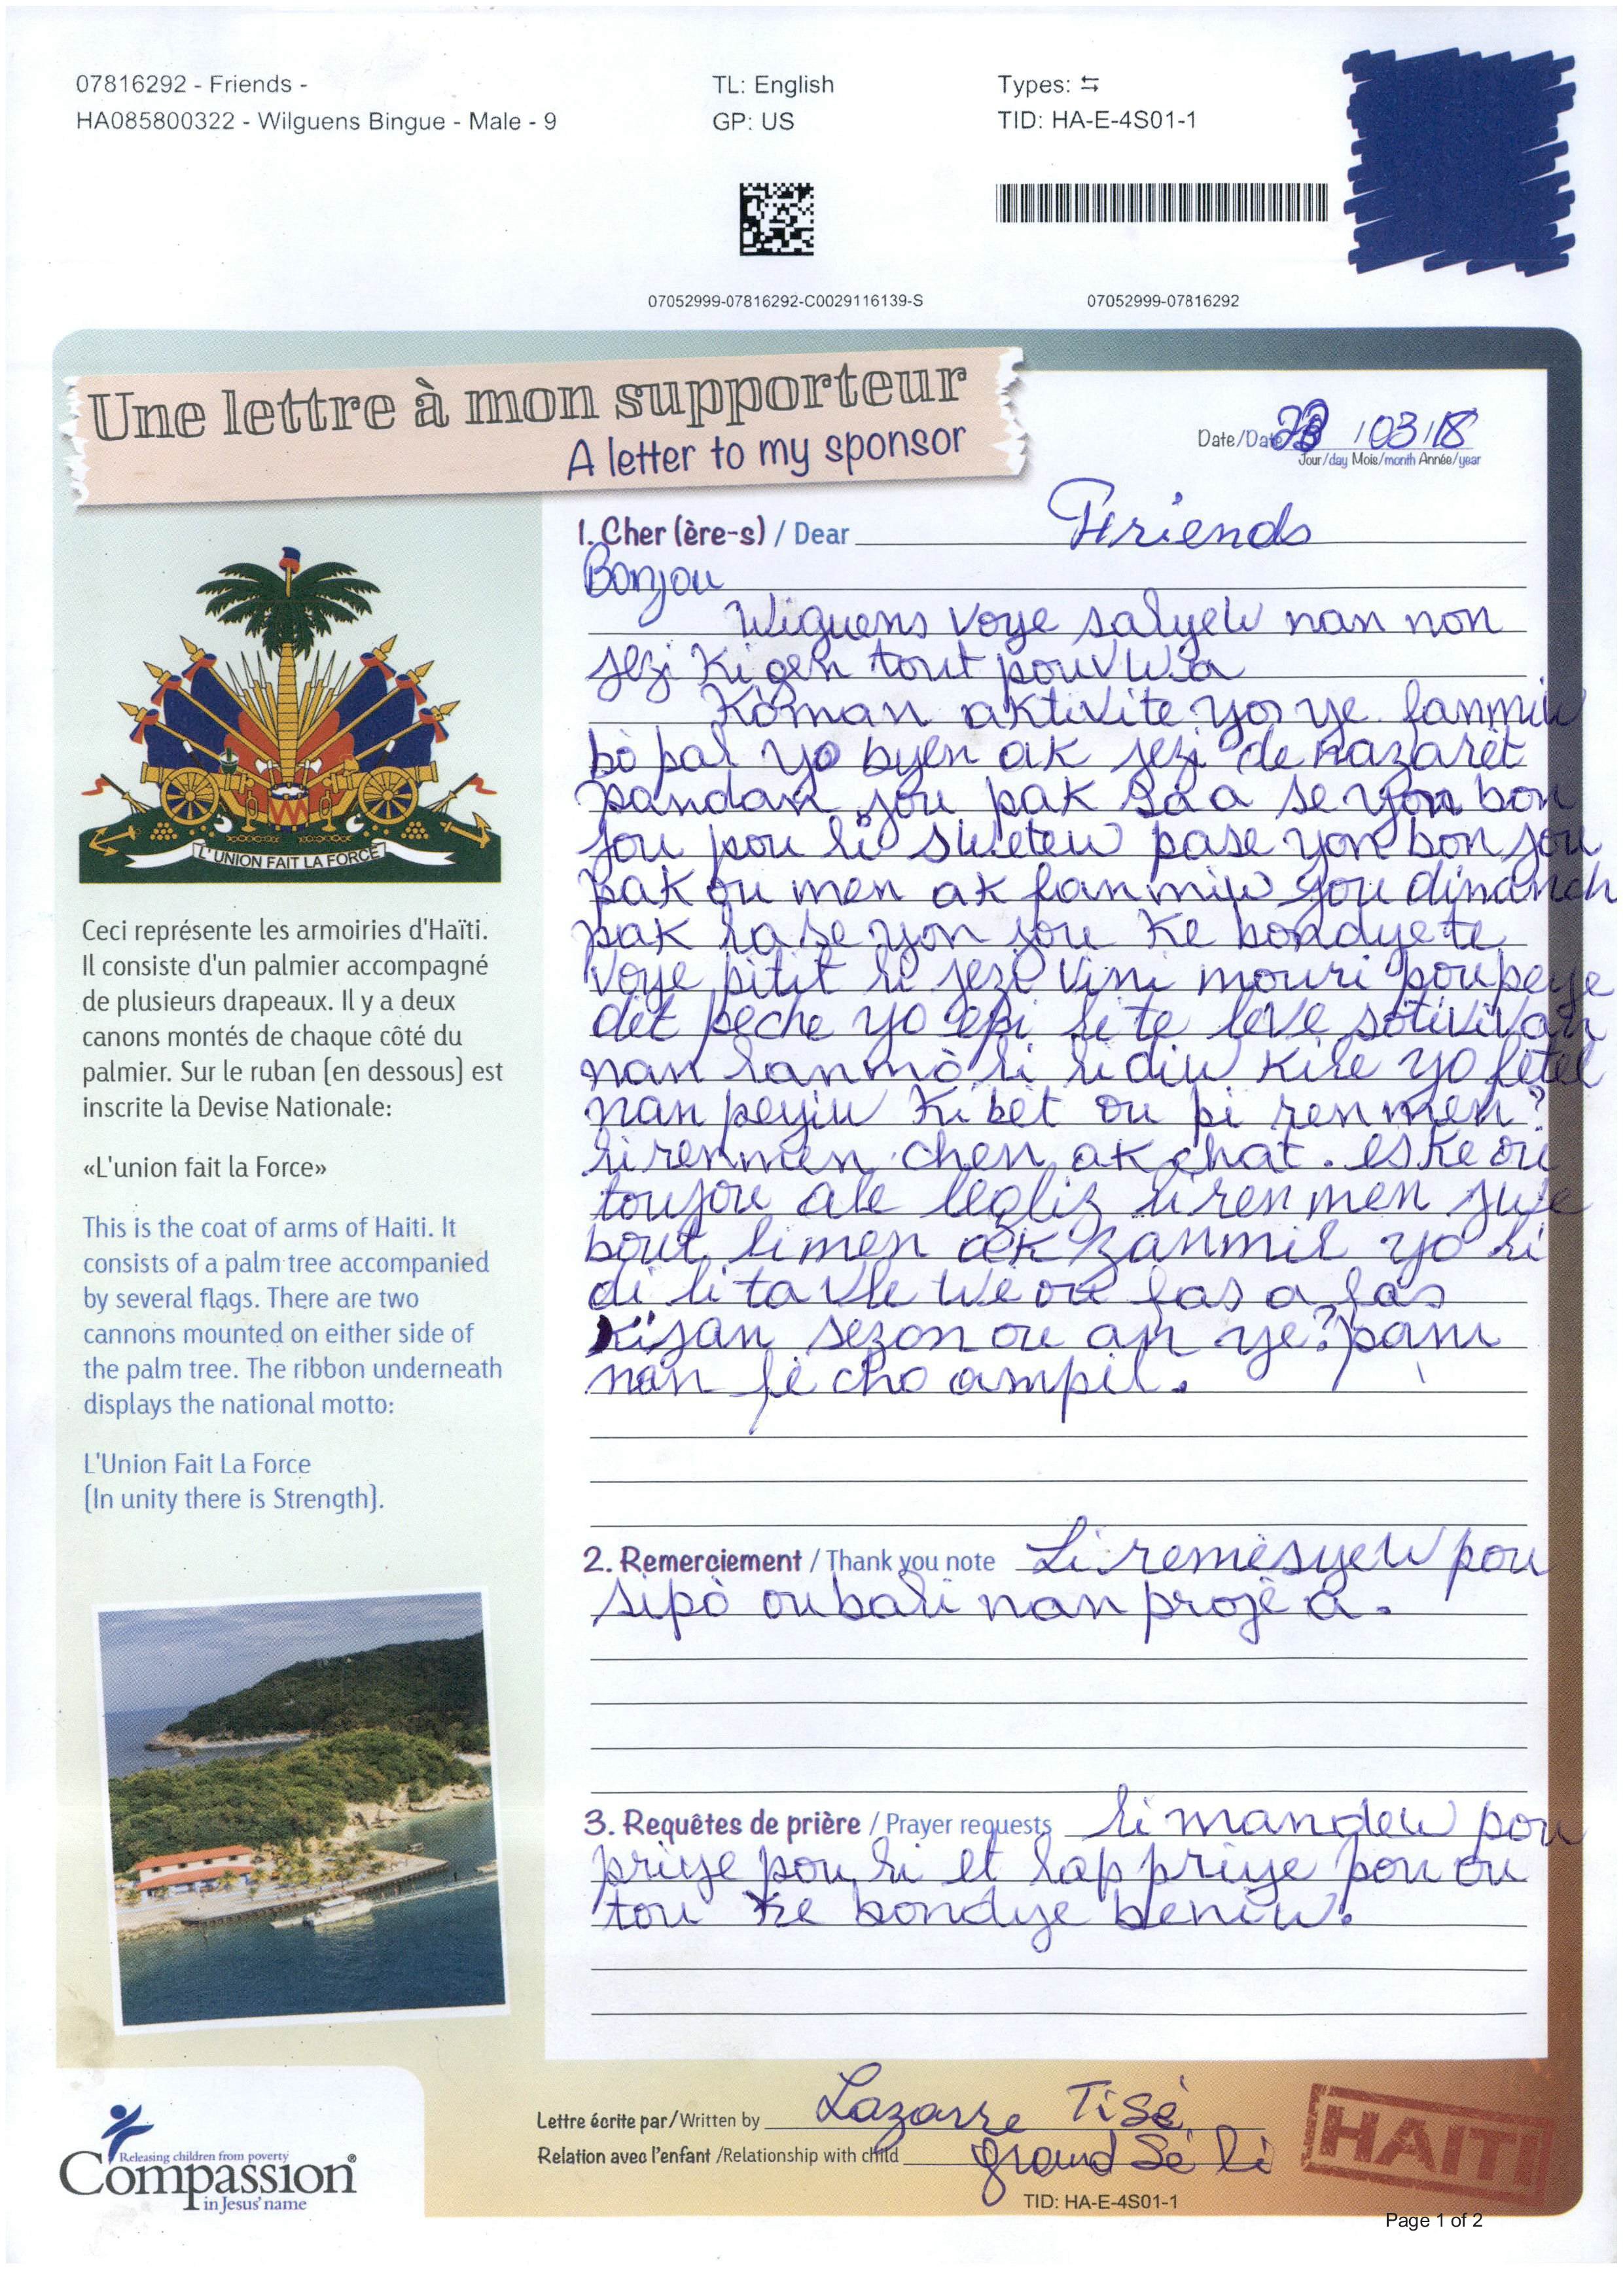 07816292 - Friends -
HA085800322 - Wilguens Bingue - Male - 9
TL: English
GP: US
Types: ⇆
TID: HA-E-4S01-1
07052999-07816292-C0029116139-S
07052999-07816292
Une lettre à mon supporteur
A letter to my sponsor
Date/Date /03/18
Jour/day Mois/month Année/year
1. Cher (ère-s) / Dear Friends
Bonjou
Wiguens voye salyew nan non
jezi ki gen tout pouvwa
Koman aktivite yo ye fanmiw
bò bal yo byen ak jezi de nazarèt
pandan jou pak sa a se yon bon
jou pou li swetew pase yon bon jou
pak ou men ak fanmiw jou dimanch
pak la se yon jou ke bondye te
voye pitit li jezi vini mouri pou peye
dèt peche yo epi li te leve sotivivan
nan lanmò li li diw kile yo fetel
nan peyiw ki bèt ou pi renmen?
li renmen chen ak chat. eske ou
toujou ale legliz li renmen jwe
boul limen ak zanmil yo li
di li ta vle wè ou fas a fas
kijan sezon ou an ye? pam
nan fè cho ampil.
2. Remerciement / Thank you note Li remèsyew pou
sipò ou bali nan projè a.
3. Requêtes de prière / Prayer requests li mandew pou
priye pou li et lap priye pou ou
tou ke bondye beniw.
L'UNION FAIT LA FORCE
Ceci représente les armoiries d'Haïti.
Il consiste d'un palmier accompagné
de plusieurs drapeaux. Il y a deux
canons montés de chaque côté du
palmier. Sur le ruban (en dessous) est
inscrite la Devise Nationale:
«L'union fait la Force»
This is the coat of arms of Haiti. It
consists of a palm tree accompanied
by several flags. There are two
cannons mounted on either side of
the palm tree. The ribbon underneath
displays the national motto:
L'Union Fait La Force
(In unity there is Strength).
Releasing children from poverty
Compassion®
in Jesus' name
Lettre écrite par/Written by Lazarre Tisè
Relation avec l'enfant /Relationship with child grand Sè li
HAITI
TID: HA-E-4S01-1
Page 1 of 2